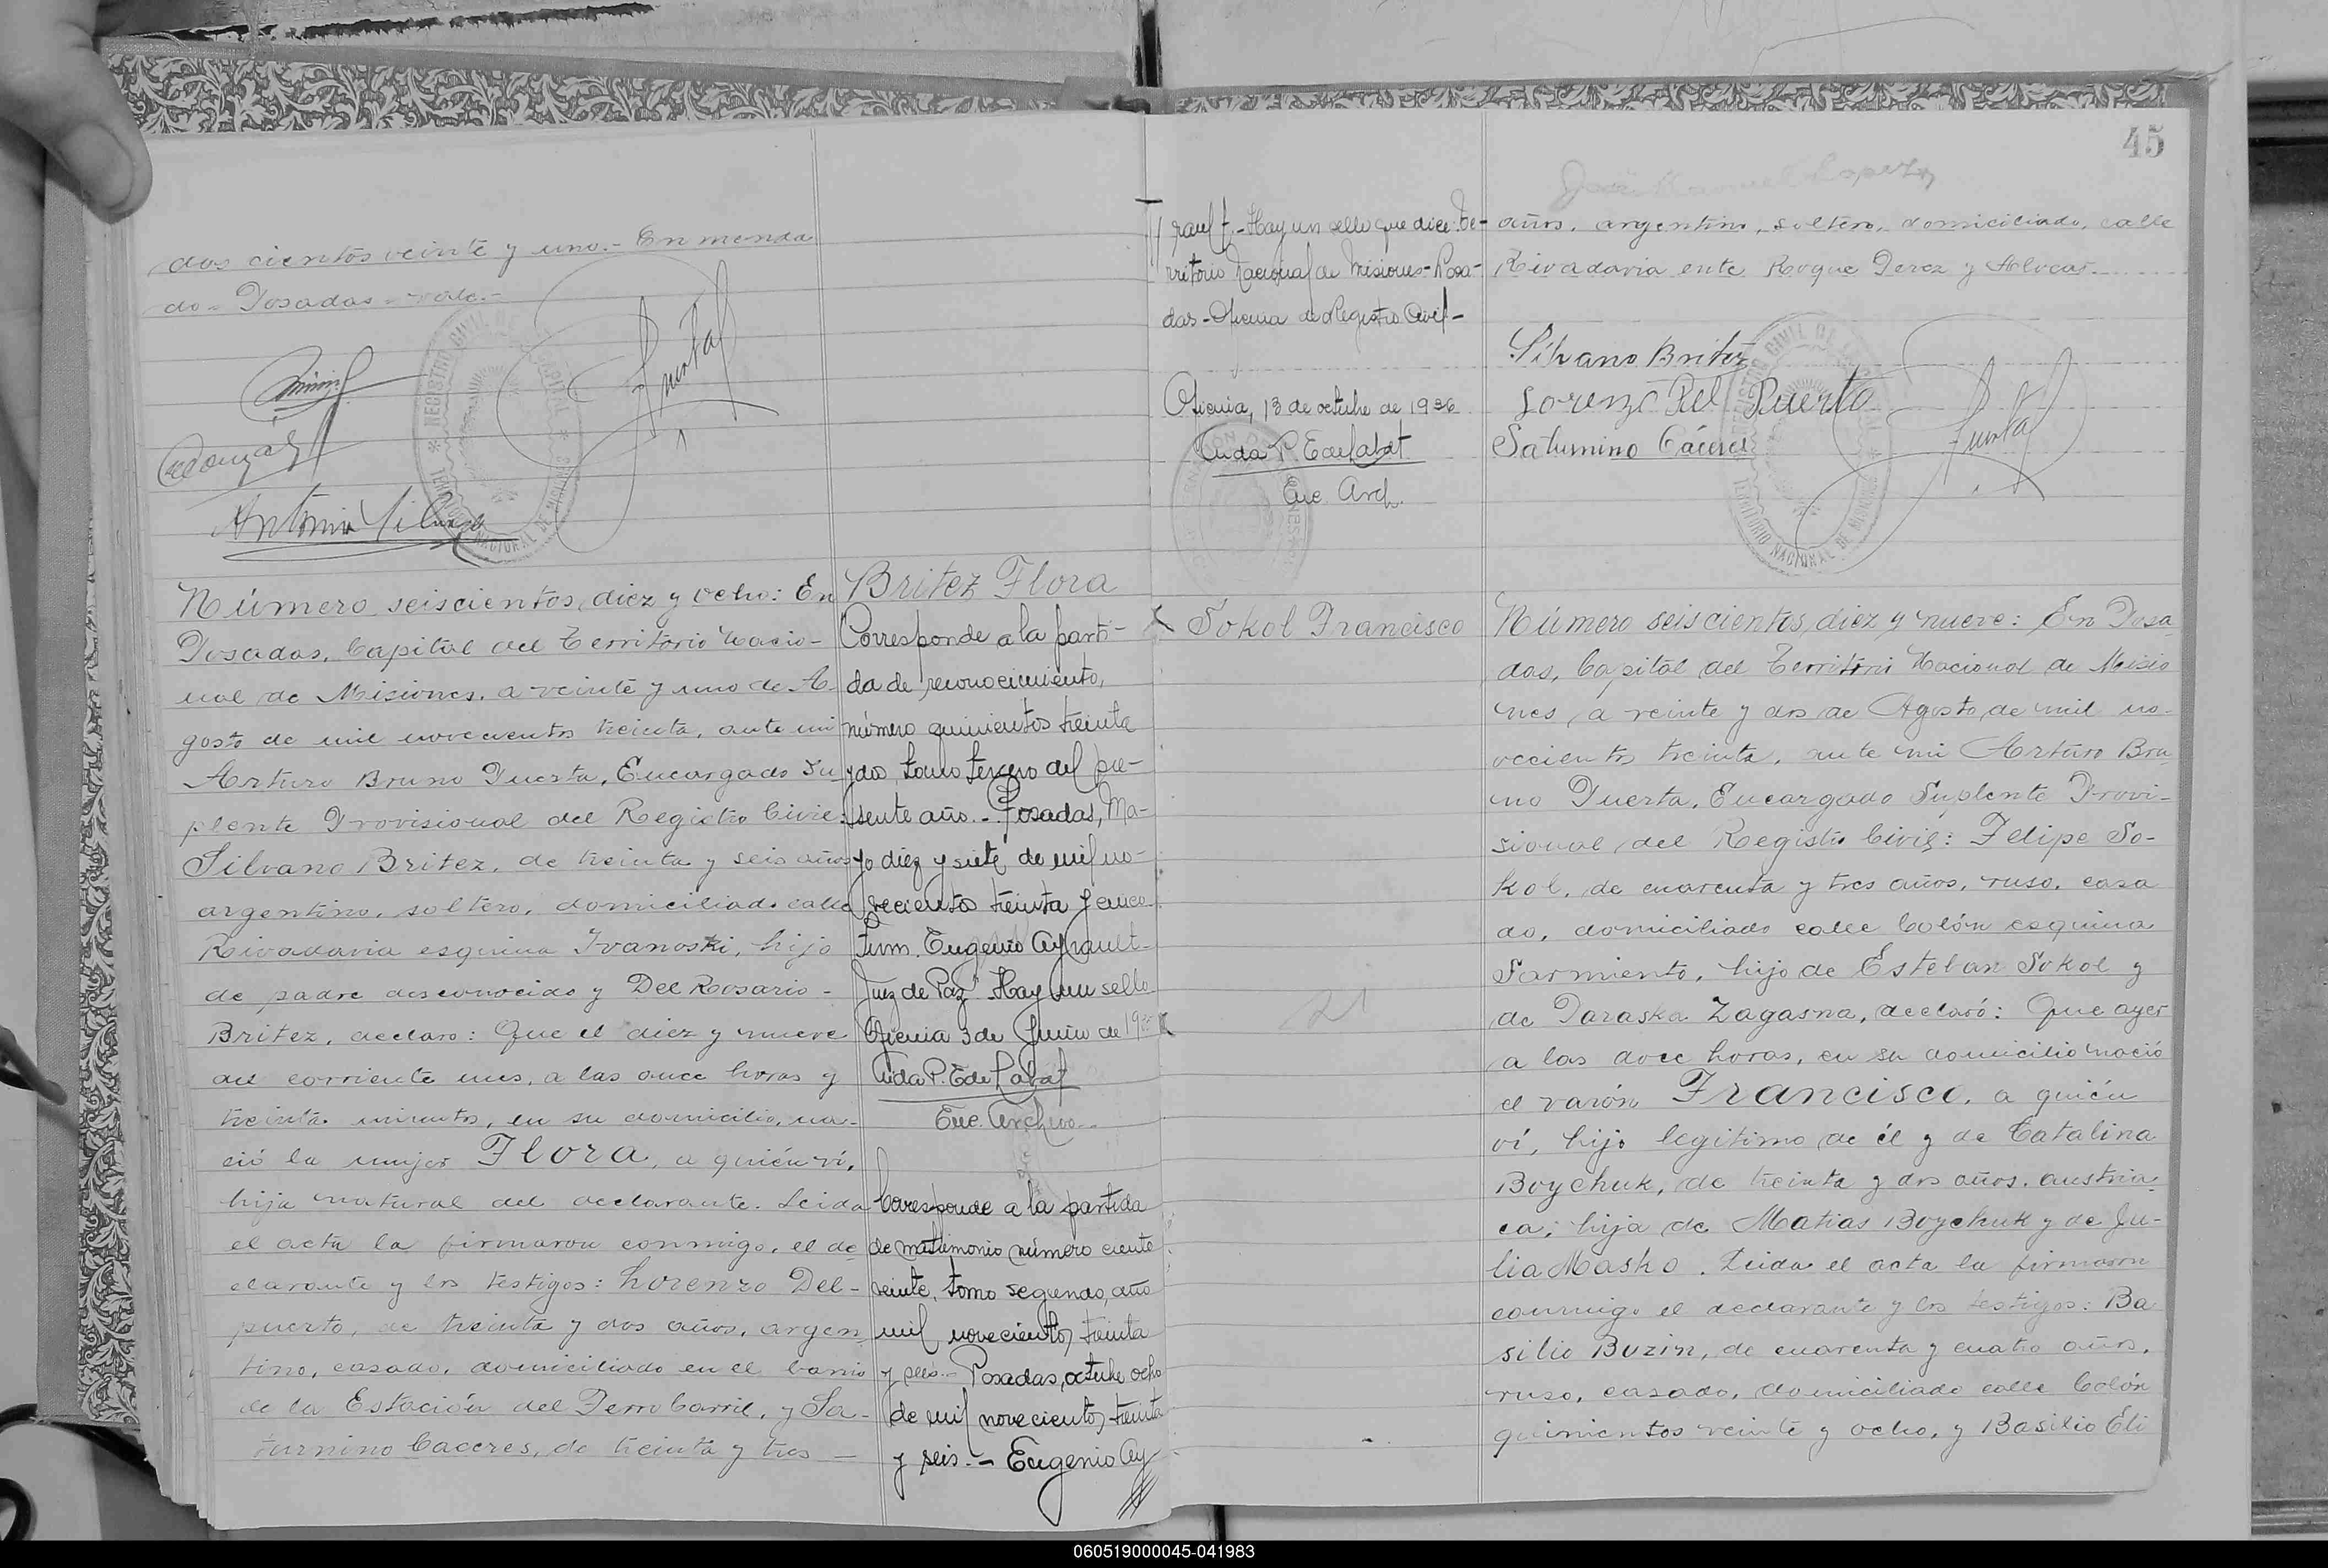 dos cientos veinte y uno.- Enmenda
do - Posadas - vale.-
Antonio
Número seiscientos diez y ocho: En
Posadas, Capital del Territorio Nacio-
nal de Misiones, a veinte y uno de A-
gosto de mil novecientos treinta, ante mi
Arturo Bruno Puerta, Encargado Su-
plente Provisional del Registro Civil:
Silvano Britez, de treinta y seis años
argentino, soltero, domiciliado calle
Rivadavia esquina Ivanoski, hijo
de padre desconocido y Del Rosario -
Britez, declaro: Que el diez y nueve
del corriente mes, a las once horas y
treinta minutos, en su domicilio, na-
ció la mujer Flora, a quién ví,
hija natural del declarante. Leida
el acta la firmaron conmigo, el de
clarante y los testigos: Lorenzo Del-
puerto, de treinta y dos años, argen
tino, casado, domiciliado en el barrio
de la Estación del Ferro Carril, y Sa-
turnino Caceres, de treinta y tres -
Britez Flora
Corresponde a la parti-
da de reconocimiento,
número quinientos treinta
y dos tomo tercero del pre-
sente año.- Posadas, Ma-
yo diez y siete de mil no-
vecientos treinta y cinco-
Firm. Eugenio Ayrault-
Juez de Paz" Hay un sello-
Oficina 3 de Junio de 19
Aida P. E de Labat
Enc. Archivo.-
Corresponde a la partida
de matrimonio número ciento
veinte, tomo segundo, año
mil novecientos treinta
y seis.- Posadas, octubre ocho
de mil novecientos treinta
y seis.- Eugenio Ay
45
rault.- Hay un sello que dice: Te-
rritorio Nacional de Misiones - Posa-
das - Oficina de Registro Civil -
Oficina, 13 de octubre de 1936
Aida P. E de Labat
Enc. Arch.
José Manuel Lopez
años, argentino, soltero, domiciliado, calle
Rivadavia ente Roque Perez y Alvear.
Silvano Britez
Lorenzo Del Puerto
Saturnino Cáceres
REGISTRO CIVIL
TERRITORIO NACIONAL DE MISIONES
Sokol Francisco
Número seiscientos diez y nueve: En Posa
das, Capital del Territorio Nacional de Misio
nes, a veinte y dos de Agosto de mil no-
vecientos treinta, ante mi Arturo Bru
no Puerta, Encargado Suplente Provi-
sional del Registro Civil: Felipe So-
kol, de cuarenta y tres años, ruso, casa
do, domiciliado calle Colón esquina
Sarmiento, hijo de Esteban Sokol y
de Paraska Zagasna, declaró: Que ayer
a las doce horas, en su domicilio nació
el varón Francisco, a quién
ví, hijo legitimo de él y de Catalina
Boychuk, de treinta y dos años, austria-
ca, hija de Matias Boychuk y de Ju-
lia Masko. Leida el acta la firmaron
conmigo el declarante y los testigos: Ba
silio Buzin, de cuarenta y cuatro años,
ruso, casado, domiciliado calle Colón
quinientos veinte y ocho, y Basilio Eli
060519000045-041983